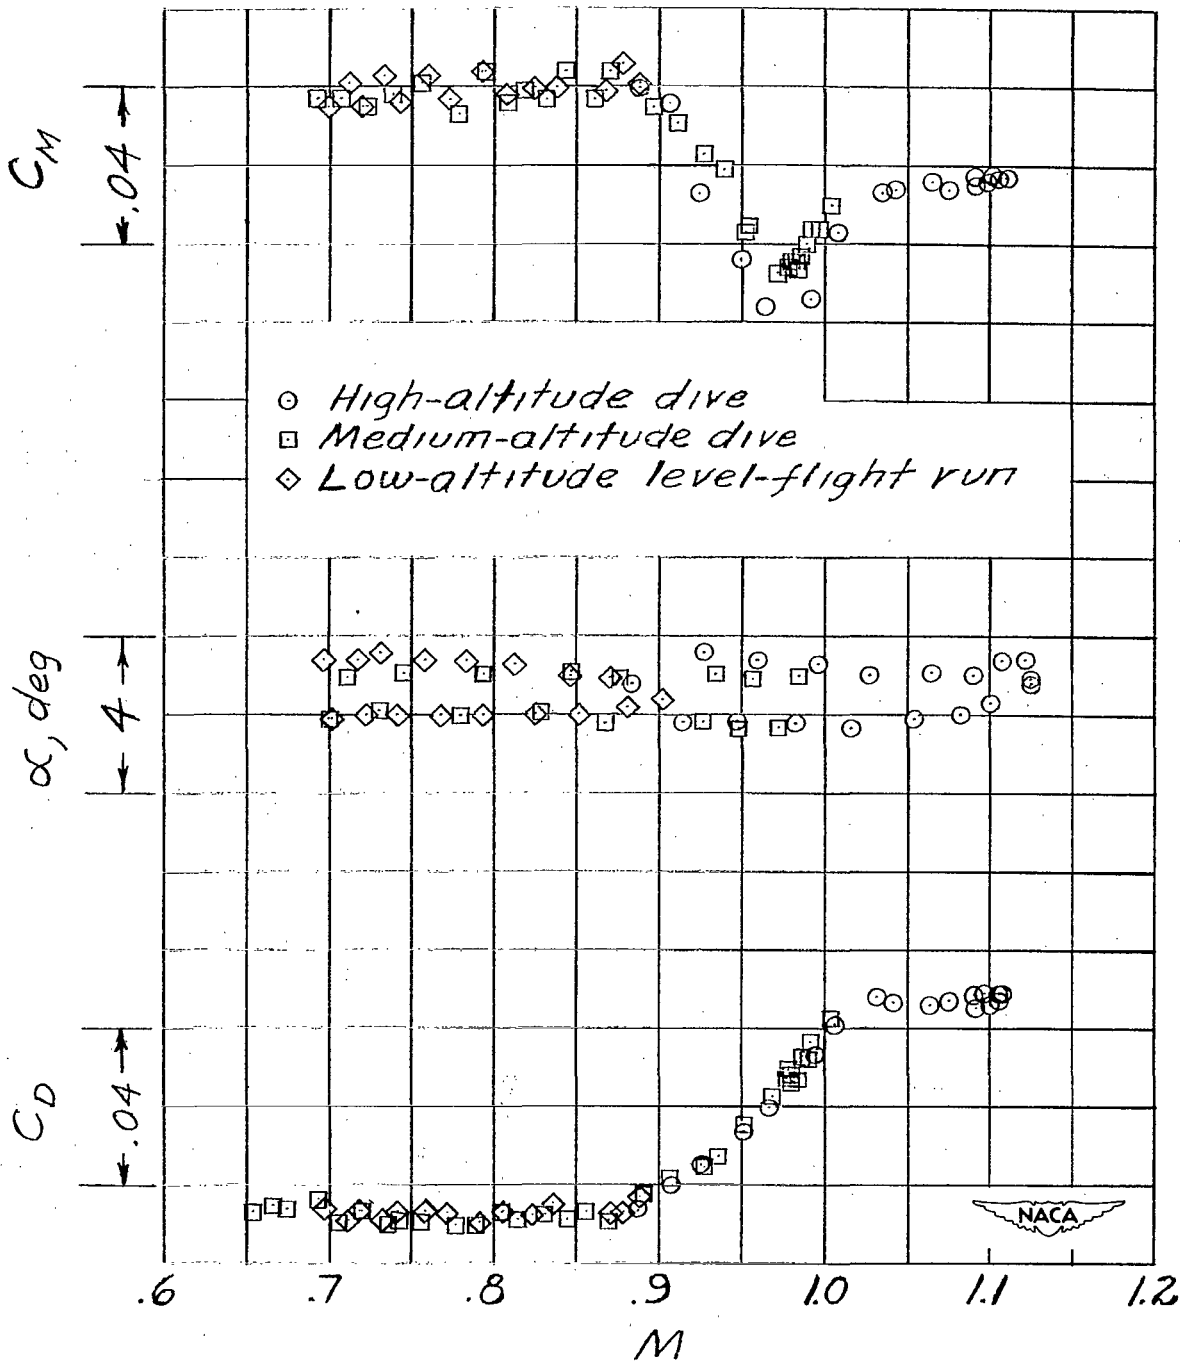 C_M
.04
○ High-altitude dive
□ Medium-altitude dive
◇ Low-altitude level-flight run
α, deg
4
C_D
.04
NACA
.6 .7 .8 .9 1.0 1.1 1.2
M